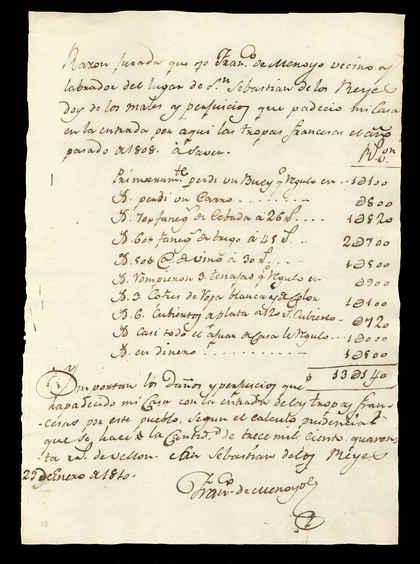 Razon jurada que yo Fran.co de Menoyo vecino y
labrador del lugar de S.n Sebastian de los Reyes
doy de los males y perjuicios que padecio mi Casa
en la entrada por aqui las tropas francesas el año
pasado de 1808. à saver.
R.s von
Primeram.te perdi un Buey q.e regulo en 1100
D. perdi un Carro 800
D. 70 faneg.s de Cebada à 26 1820
D. 60 faneg.s de trigo à 45 2700
D. 50 de vino à 30 1500
D. rompieron 3 tenajas q.e regulo en
D. 3 Cofres de ropa blanca y de Color 1100
D. 6 Cubiertos de plata à 120 Cubierto 720
D. Casi todo el ajuar de Casa le regulo
D. en dinero 1500
13140
Importan los Daños y perjuicios que
ha padecido mi Casa con la entrada de las tropas fran-
cesas por este pueblo, segun el calculo prudencial
que se hace la Cantid.d de trece mil ciento quaren-
ta r.s de vellon. San Sebastian de los Reyes
25 de Enero de 1810.
Fran.co de Menoyo